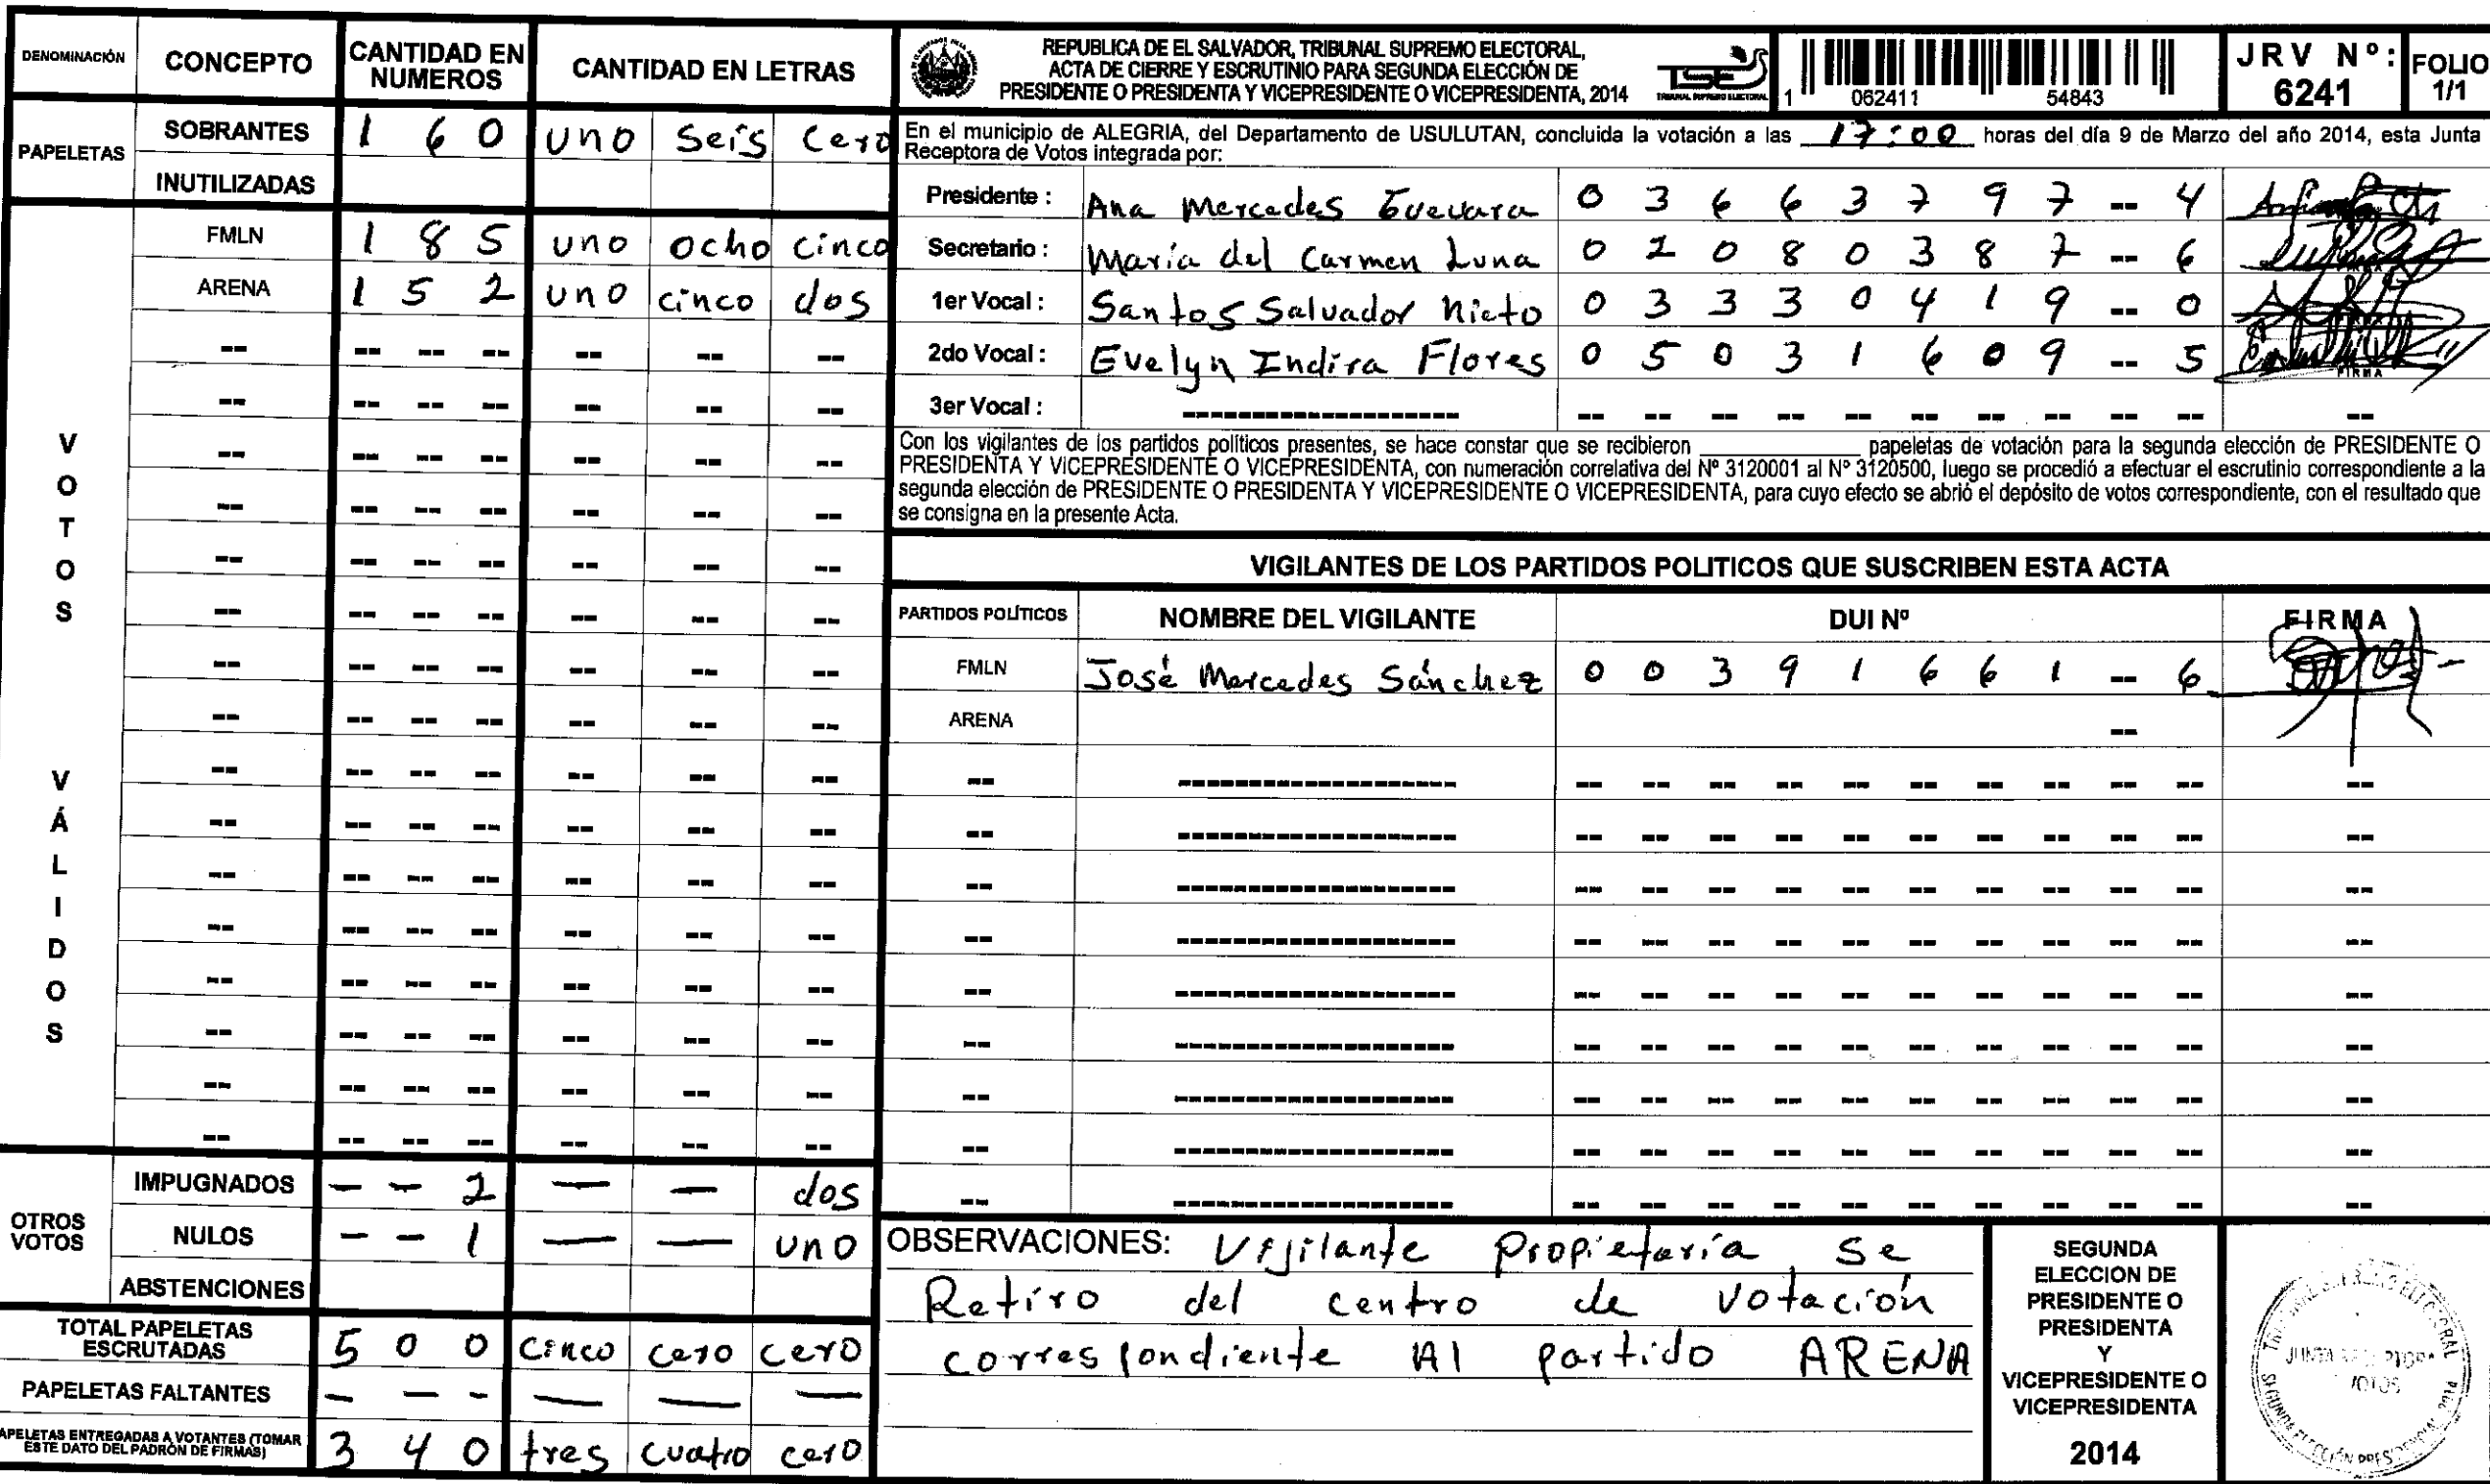 DENOMINACIÓN CONCEPTO CANTIDAD EN NUMEROS CANTIDAD EN LETRAS
PAPELETAS
SOBRANTES 1 6 0 uno Seis Cero
INUTILIZADAS
VOTOS VÁLIDOS
FMLN 1 8 5 uno ocho cinco
ARENA 1 5 2 uno cinco dos
OTROS VOTOS
IMPUGNADOS - - 2 - - dos
NULOS - - 1 - - uno
ABSTENCIONES
TOTAL PAPELETAS ESCRUTADAS 5 0 0 cinco cero cero
PAPELETAS FALTANTES - - - - - -
APELETAS ENTREGADAS A VOTANTES (TOMAR ESTE DATO DEL PADRÓN DE FIRMAS) 3 4 0 tres cuatro cero
REPUBLICA DE EL SALVADOR, TRIBUNAL SUPREMO ELECTORAL,
ACTA DE CIERRE Y ESCRUTINIO PARA SEGUNDA ELECCIÓN DE
PRESIDENTE O PRESIDENTA Y VICEPRESIDENTE O VICEPRESIDENTA, 2014
TSE
TRIBUNAL SUPREMO ELECTORAL
1 062411 54843
JRV Nº: 6241
FOLIO 1/1
En el municipio de ALEGRIA, del Departamento de USULUTAN, concluida la votación a las 17:00 horas del día 9 de Marzo del año 2014, esta Junta
Receptora de Votos integrada por:
Presidente : Ana Mercedes Guevara 0 3 6 6 3 7 9 7 -- 4
Secretario : María del Carmen Luna 0 2 0 8 0 3 8 7 -- 6
1er Vocal : Santos Salvador Nieto 0 3 3 3 0 4 1 9 -- 0
2do Vocal : Evelyn Indira Flores 0 5 0 3 1 6 0 9 -- 5
FIRMA
3er Vocal :
Con los vigilantes de los partidos políticos presentes, se hace constar que se recibieron ________ papeletas de votación para la segunda elección de PRESIDENTE O
PRESIDENTA Y VICEPRESIDENTE O VICEPRESIDENTA, con numeración correlativa del Nº 3120001 al Nº 3120500, luego se procedió a efectuar el escrutinio correspondiente a la
segunda elección de PRESIDENTE O PRESIDENTA Y VICEPRESIDENTE O VICEPRESIDENTA, para cuyo efecto se abrió el depósito de votos correspondiente, con el resultado que
se consigna en la presente Acta.
VIGILANTES DE LOS PARTIDOS POLITICOS QUE SUSCRIBEN ESTA ACTA
PARTIDOS POLÍTICOS NOMBRE DEL VIGILANTE DUI Nº FIRMA
FMLN José Mercedes Sánchez 0 0 3 9 1 6 6 1 -- 6
ARENA --
OBSERVACIONES: Vijilante Propietaria se
Retiro del centro de votación
correspondiente Al partido ARENA
SEGUNDA
ELECCION DE
PRESIDENTE O
PRESIDENTA
Y
VICEPRESIDENTE O
VICEPRESIDENTA
2014